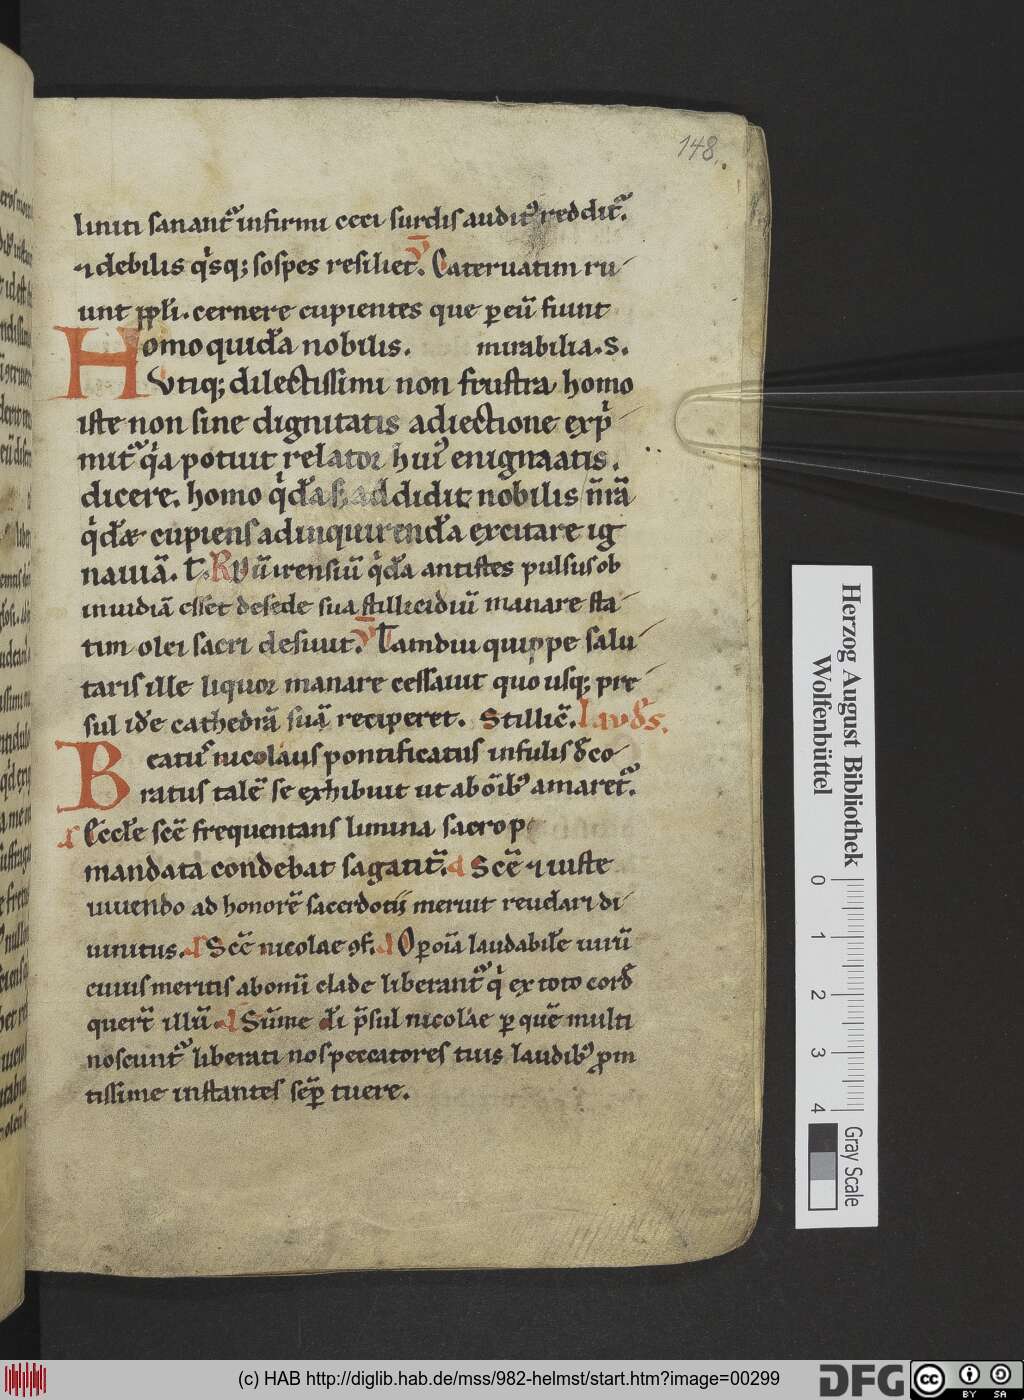 148.
liniti sanant᷑ infirmi ceci surdis audit᷒ reddit᷑.
⁊ debilis qͥsq; sospes resiliet. V̄ Cateruatim ru-
unt ppl̄i. cernere cupientes que ꝑ eū fiunt
Homo quidā nobilis. mirabilia. S.
Vtiq; dilectissimi non frustra homo
iste non sine dignitatis adiectione exp̍-
mit᷑ qͥa potuit relator hui᷒ enigmatis.
dicere. homo qͥdā sꝫ addidit nobilis n̄rā
qͥdē cupiens ad inquirendā excitare ig
nauiā. T. R Vū irensiū qͥdā antistes pulsus ob
inuidiā esset de sede sua stillicidiū manare sta-
tim olei sacri desiuit. V̄ Tamdiu quippe salu-
taris ille liquor manare cessauit quo usq; pre-
sul idē cathedrā suā reciperet. Stillic̄. Laud̄s.
Beatus nicolaus pontificatus infulis deco-
ratus talē se exhibuit ut ab oīb᷒ amaret᷑.
a Eccl̄e sc̄e frequentans limina sacro
mandata condebat sagatit᷑. a Sc̄e ⁊ iuste
uiuendo ad honorē sacerdotii meruit reuelari di-
uinitus. a Sc̄e nicolae ꝯf. a O ꝑ oīa laudabilē uirū
cuius meritis ab omī clade liberant᷑ qͥ ex toto corde
querūt illū. a Sūme dī p̄sul nicolae ꝑ quē multi
noscunt᷑ liberati nos peccatores tuis laudib᷒ ꝓm
tissime instantes sēꝑ tuere.
Herzog August Bibliothek
Wolfenbüttel
0 1 2 3 4
Gray Scale
(c) HAB http://diglib.hab.de/mss/982-helmst/start.htm?image=00299
DFG
cc BY SA